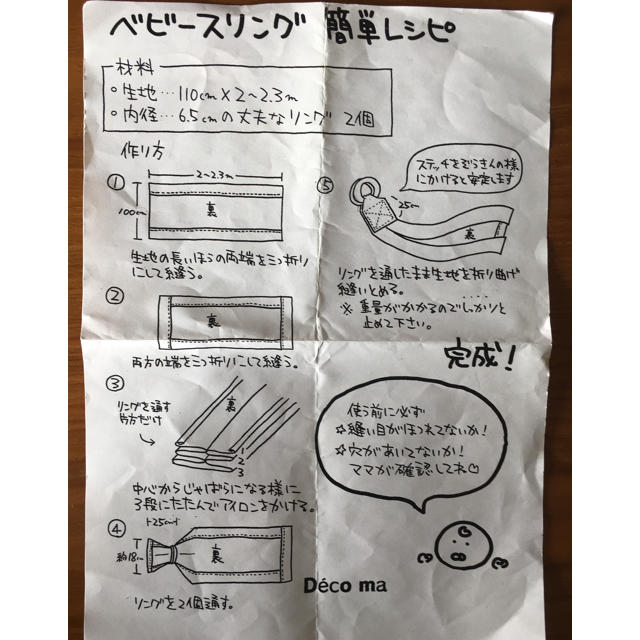 ベビースリング 簡単レシピ
材料
○生地…110cm×2~2.3m
○内径…6.5cmの丈夫なリング 2個
作り方
①
2~2.3m
100cm
裏
生地の長いほうの両端を三つ折り
にして縫う。
②
裏
両方の端を三つ折りにして縫う。
③
リングを通す
片方だけ
裏
1
2
3
中心からじゃばらになる様に
3段にたたんでアイロンをかける。
④
25cm
約18cm
裏
リングを2個通す。
⑤
ステッチをぞうきんの様
にかけると安定します
25cm
裏
リングを通したまま生地を折り曲げ
縫いとめる。
※重量がかかるのでしっかりと
止めて下さい。
完成!
使う前に必ず
☆縫い目がほつれてないか!
☆穴があいてないか!
ママが確認してね♡
Déco ma